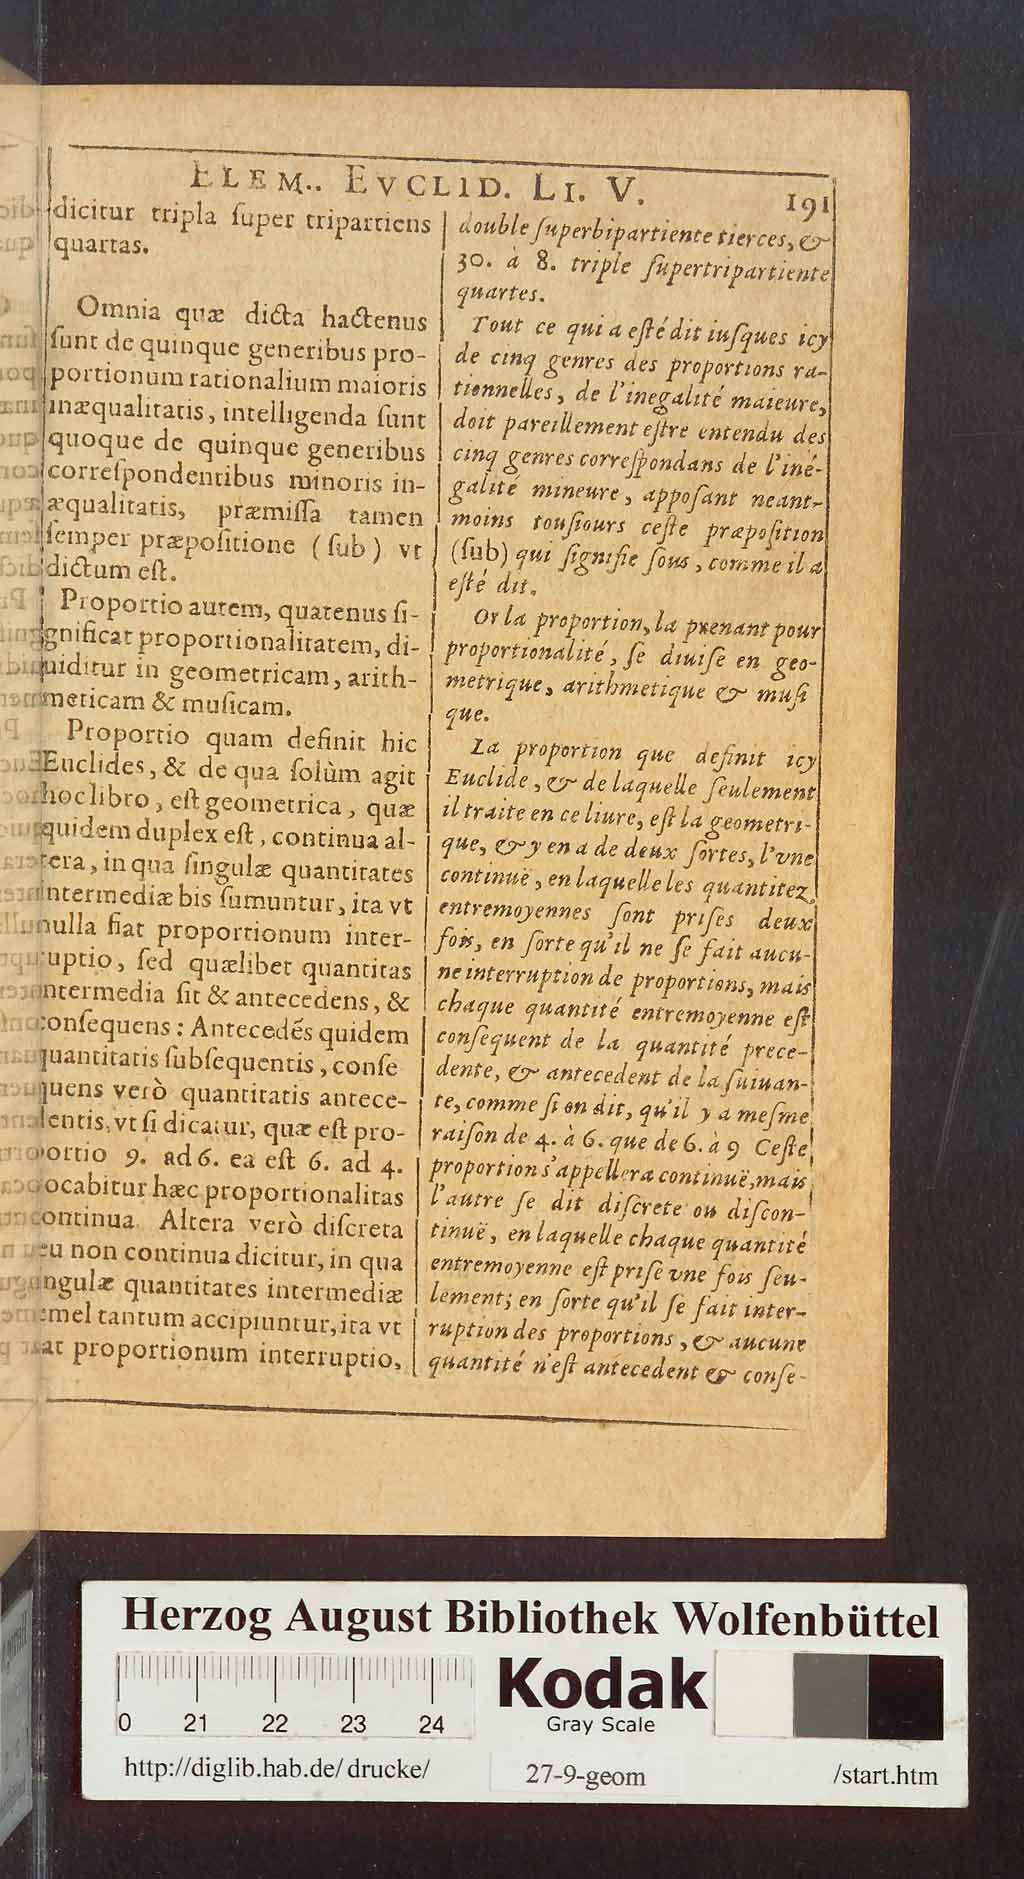 ELEM.. EVCLID. LI. V.
191
dicitur tripla ſuper tripartiens
quartas.
Omnia quæ dicta hactenus
ſunt de quinque generibus pro-
portionum rationalium maioris
inæqualitatis, intelligenda ſunt
quoque de quinque generibus
correſpondentibus minoris in-
æqualitatis, præmiſſa tamen
ſemper præpoſitione (ſub) vt
dictum eſt.
Proportio autem, quatenus ſi-
gnificat proportionalitatem, di-
uiditur in geometricam, arith-
meticam & muſicam.
Proportio quam definit hic
Euclides, & de qua ſolùm agit
hoc libro, eſt geometrica, quæ
quidem duplex eſt, continua al-
tera, in qua ſingulæ quantitates
intermediæ bis ſumuntur, ita vt
nulla fiat proportionum inter-
uptio, ſed quælibet quantitas
ntermedia ſit & antecedens, &
conſequens: Antecedẽs quidem
quantitatis ſubſequentis, conſe
quens verò quantitatis antece-
entis, vt ſi dicatur, quæ eſt pro-
ortio 9. ad 6. ea eſt 6. ad 4.
ocabitur hæc proportionalitas
ontinua. Altera verò diſcreta
eu non continua dicitur, in qua
ngulæ quantitates intermediæ
emel tantum accipiuntur, ita vt
at proportionum interruptio,
double ſuperbipartiente tierces, &
30. à 8. triple ſupertripartiente
quartes.
Tout ce qui a eſté dit iuſques icy
de cinq genres des proportions ra-
tionnelles, de l'inegalité maieure,
doit pareillement eſtre entendu des
cinq genres correſpondans de l'iné-
galité mineure, appoſant neant-
moins touſiours ceſte præpoſition
(ſub) qui ſignifie ſous, comme il a
eſté dit.
Or la proportion, la prenant pour
proportionalité, ſe diuiſe en geo-
metrique, arithmetique & muſi
que.
La proportion que definit icy
Euclide, & de laquelle ſeulement
il traite en ce liure, eſt la geometri-
que, & y en a de deux ſortes, l'vne
continuë, en laquelle les quantitez
entremoyennes ſont priſes deux
fois, en ſorte qu'il ne ſe fait aucu-
ne interruption de proportions, mais
chaque quantité entremoyenne eſt
conſequent de la quantité prece-
dente, & antecedent de la ſuiuan-
te, comme ſi on dit, qu'il y a meſme
raiſon de 4. à 6. que de 6. à 9 Ceſte
proportion s'appellera continuë, mais
l'autre ſe dit diſcrete ou diſcon-
tinuë, en laquelle chaque quantité
entremoyenne eſt priſe vne fois ſeu-
lement; en ſorte qu'il ſe fait inter-
ruption des proportions, & aucune
quantité n'eſt antecedent & conſe-
Herzog August Bibliothek Wolfenbüttel
0 21 22 23 24
Kodak
Gray Scale
http://diglib.hab.de/drucke/
27-9-geom
/start.htm